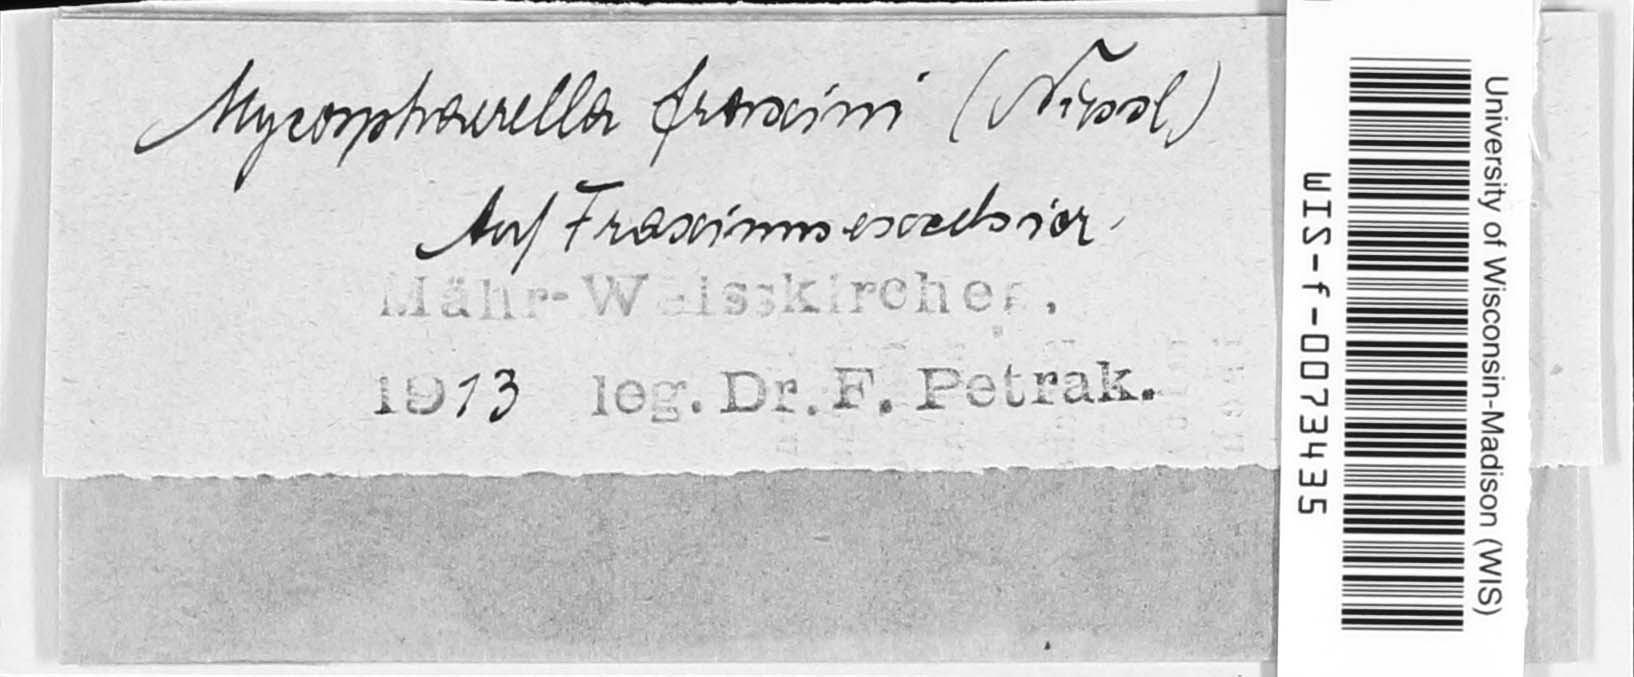 Mycosphaerella fraxini (Niessl)
Auf Fraxinus excelsior.
Mähr-Weisskirchen.
1913 leg. Dr. F. Petrak.
WIS-f-0073435
University of Wisconsin-Madison (WIS)